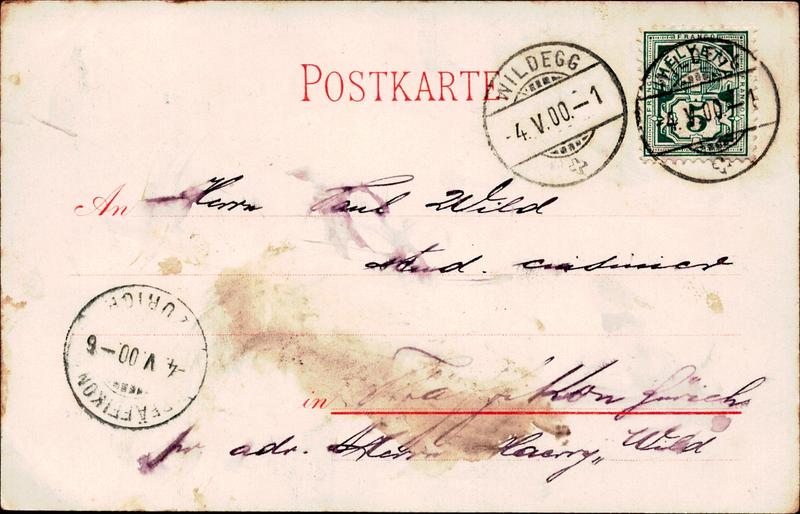 POSTKARTE
WILDEGG
-4.V.00.-1
FRANCO
5
-4.V.00.-1
An Herrn Paul Wild
stud.
ZÜRICH
-4.V.00-6
PFÄFFIKON
in Pfäffikon Zürich
pr adr. Herrn Haerry „ Wild